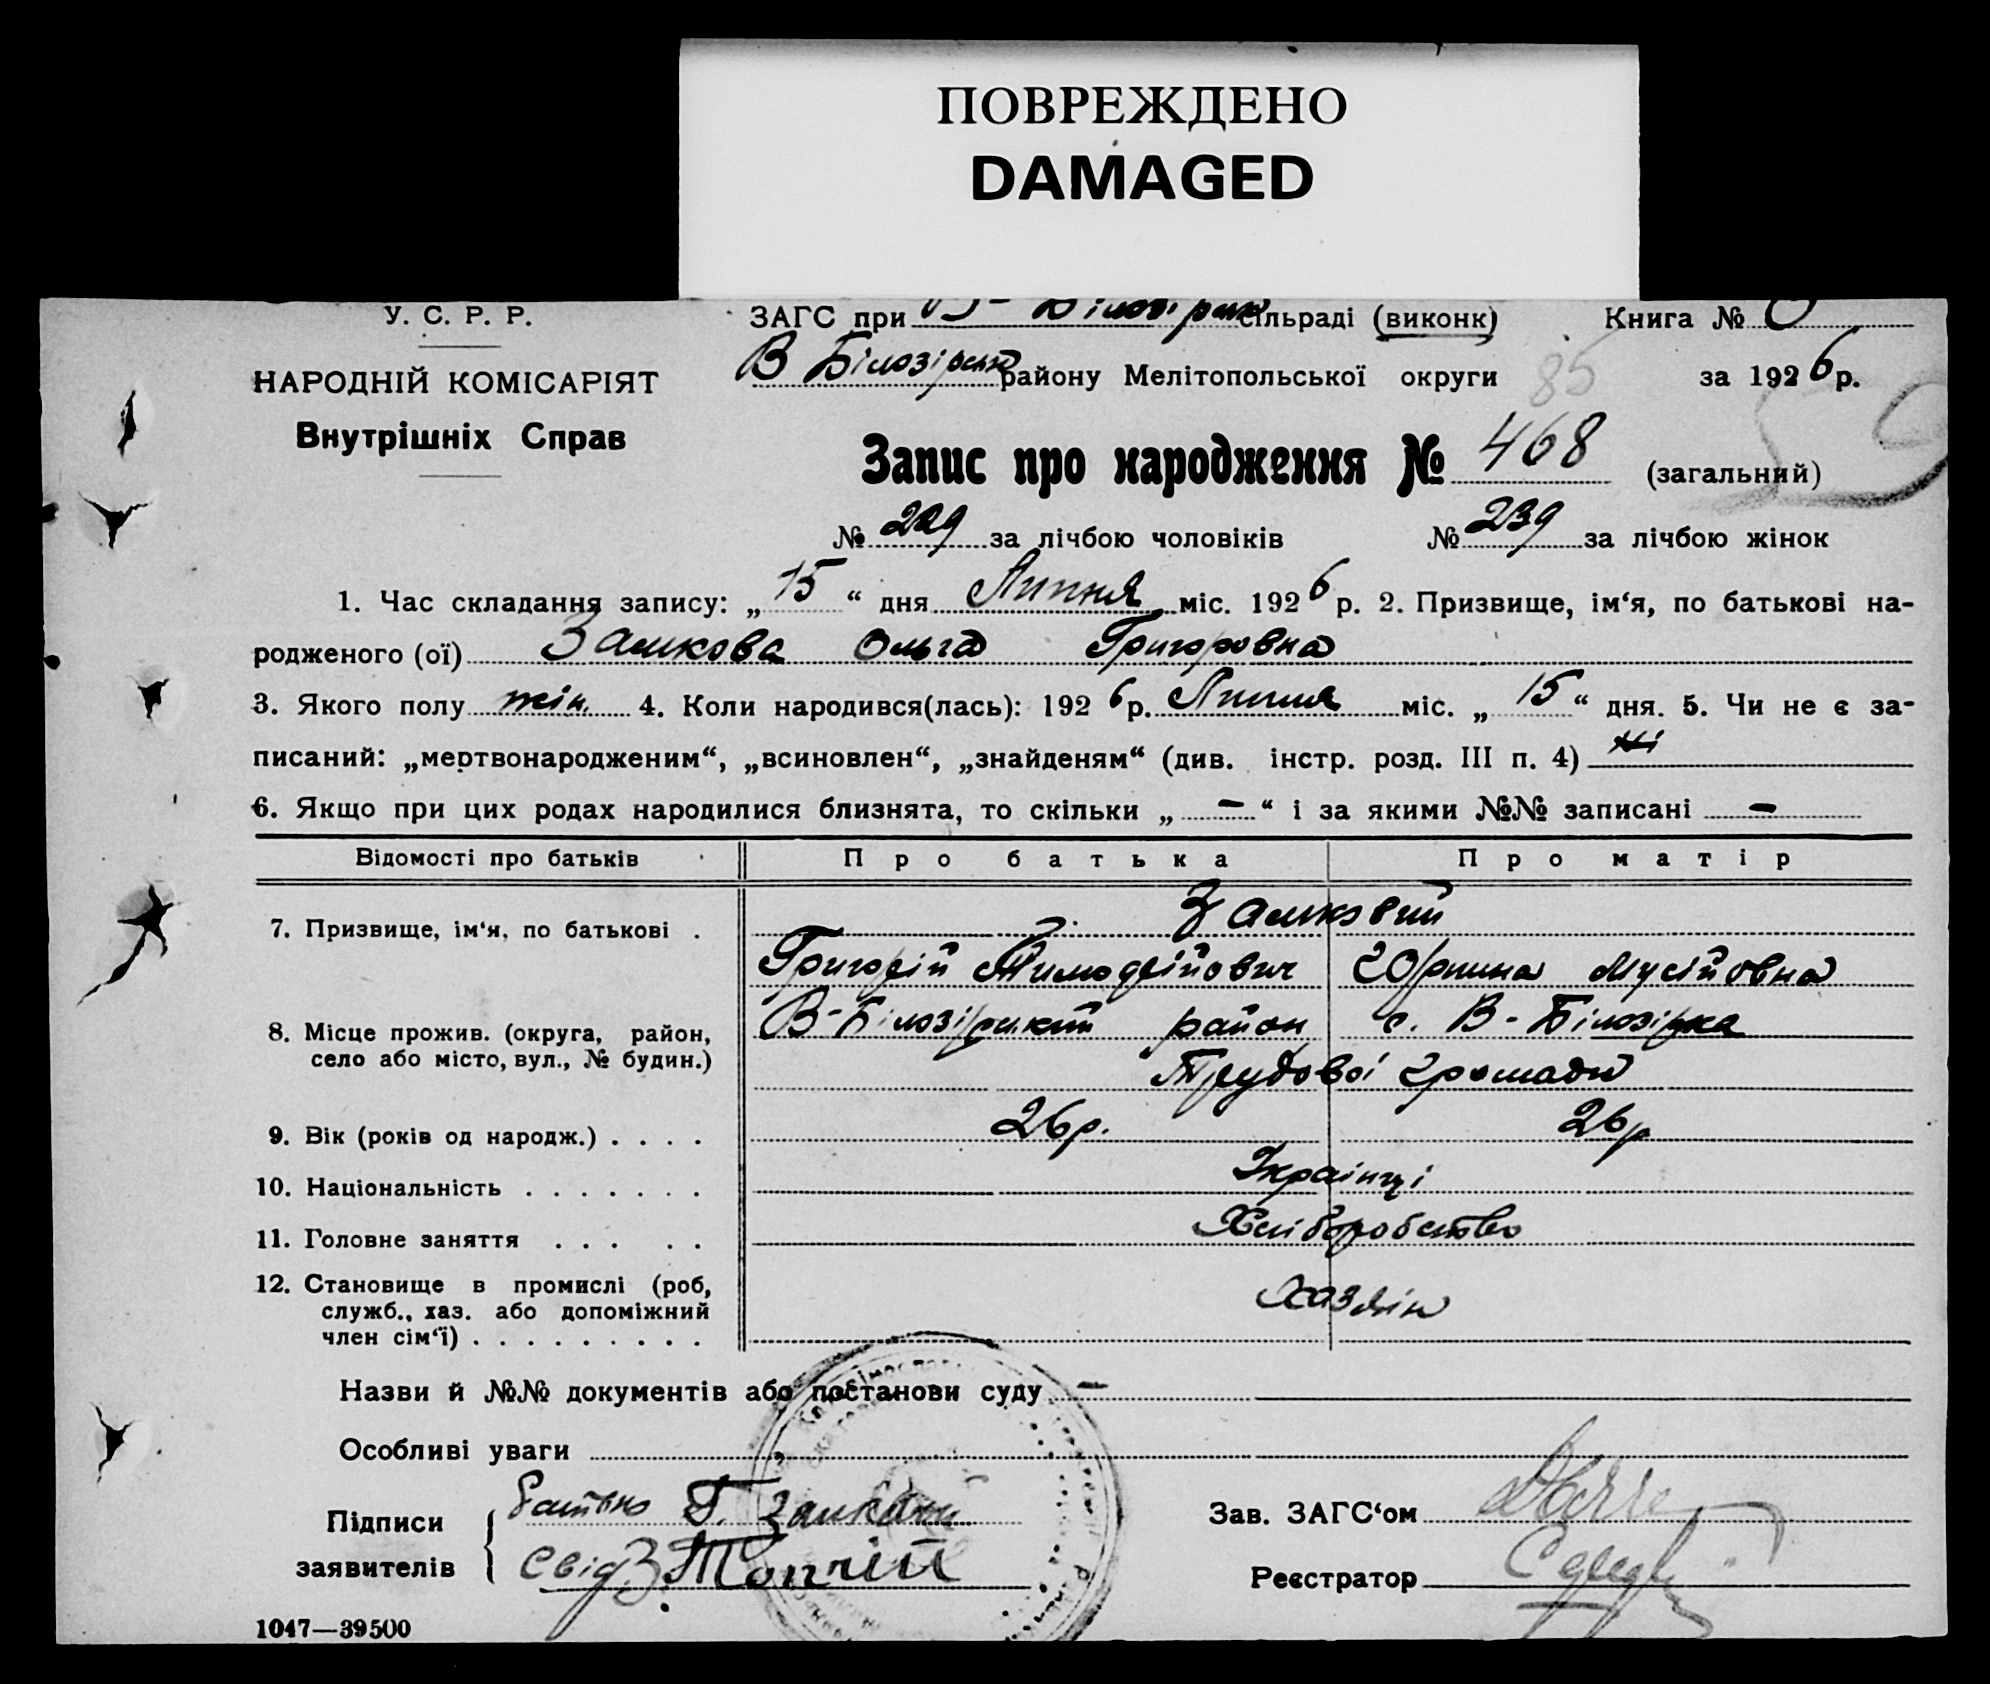 ПОВРЕЖДЕНО
DAMAGED
У. С. Р. Р.
ЗАГС при В- Білозірськ сільраді (виконк) Книга №
НАРОДНІЙ КОМІСАРІЯТ
В Білозірськ району Мелітопольської округи 85 за 1926 р.
Внутрішніх Справ
Запис про народження № 468 (загальний) 59
№ 229 за лічбою чоловіків № 239 за лічбою жінок
1. Час складання запису: „ 15 “ дня Липня міс. 1926 р. 2. Призвище, ім‘я, по батькові на-
родженого (ої) Замкова Ольга Григоровна
3. Якого полу жін. 4. Коли народився(лась): 1926 р. Липня міс. „ 15 “ дня. 5. Чи не є за-
писаний: „мертвонародженим“, „всиновлен“, „знайденям“ (див. інстр. розд. III п. 4) ні
6. Якщо при цих родах народилися близнята, то скільки „ — “ і за якими №№ записані —
Відомості про батьків Про батька Про матір
7. Призвище, ім‘я, по батькові . Замковий
Григорій Тимофійович Юрпина Мусійовна
8. Місце прожив. (округа, район, В-Білозірський район с. В-Білозірка
село або місто, вул., № будин.) Трудової громади
9. Вік (років од народж.) . . . . 26 р. 26 р
10. Національність . . . . . . . Українці
11. Головне заняття . . . . . Хліборобство
12. Становище в промислі (роб, Хазяін
служб., хаз. або допоміжний
член сім‘ї) . . . . . . . . .
Назви й №№ документів або постанови суду —
Особливі уваги
Підписи Батько Г. Замковий Зав. ЗАГС‘ом
заявителів Свід. З. Топчій Реєстратор
1047—39500